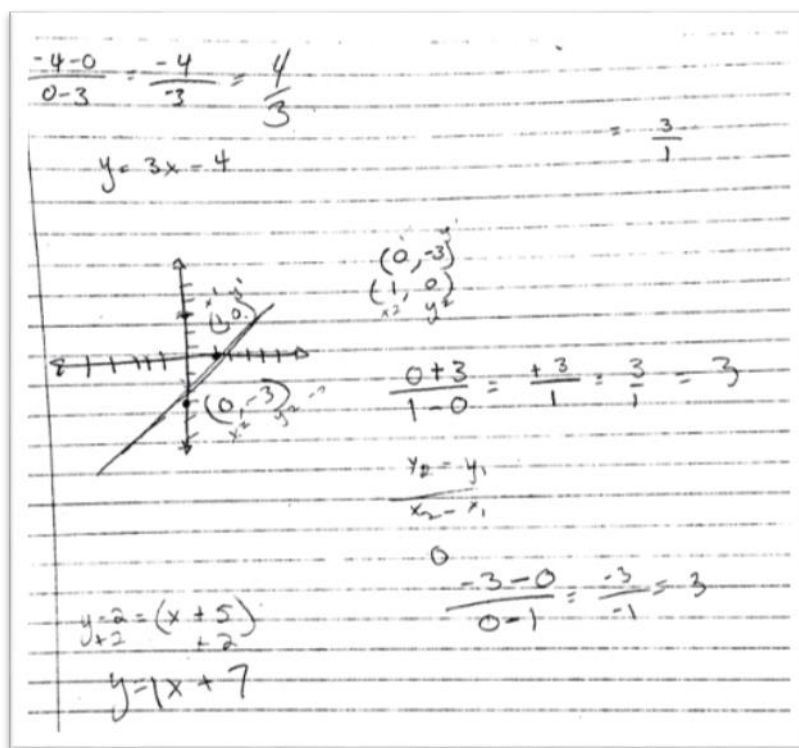 -4-0/0-3 = -4/-3 = 4/3
= 3/1
y = 3x - 4
(0, -3)
(1, 0)
x2 y2
x1 y1
(1, 0)
0+3/1-0 = +3/1 = 3/1 = 3
(0, -3)
x2 y2
y2 - y1/x2 - x1
0
-3-0/0-1 = -3/-1 = 3
y-2 = (x + 5)
+2 +2
y = 1x + 7